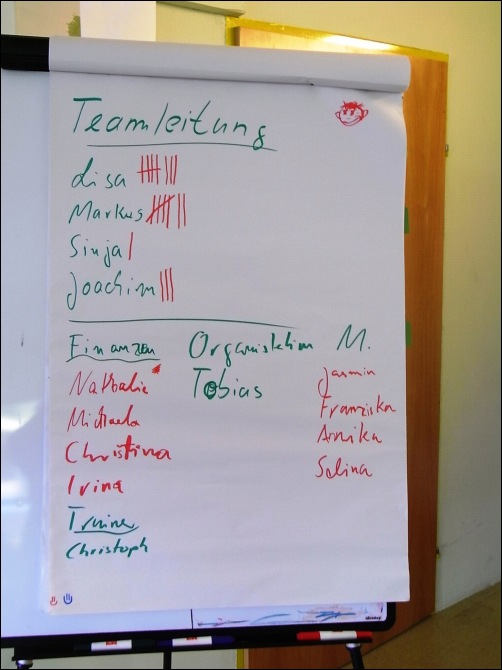 Teamleitung
Lisa
Markus
Sinja
Joachim
Finanzen Organisation M.
Nathalie* Tobias Jasmin
Michaela Franziska
Christina Annika
Irina Selina
Trainer
Christoph